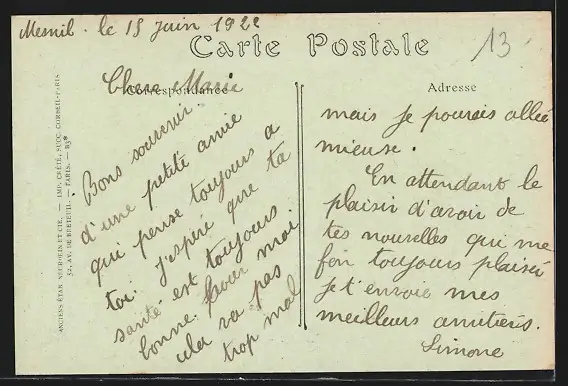 Mesnil. le 15 juin 1922
Carte Postale
13
Correspondance
Adresse
Chere Marie
Bons souvenir
d'une petite amie
qui pense toujours a
toi. J'espère que ta
santé est toujours
bonne. Pour moi
cela va pas
trop mal
mais je pourais allée
mieuse.
En attendant le
plaisir d'avoir de
tes nouvelles qui me
fon toujours plaisir
je t'envoie mes
meilleurs amitiérs.
Simone
ANCIENS ÉTAB. NEURDEIN ET CIE. — IMP. CRÉTÉ, SUCC. CORBEIL-PARIS
52, AV. DE BRETEUIL. — PARIS. —